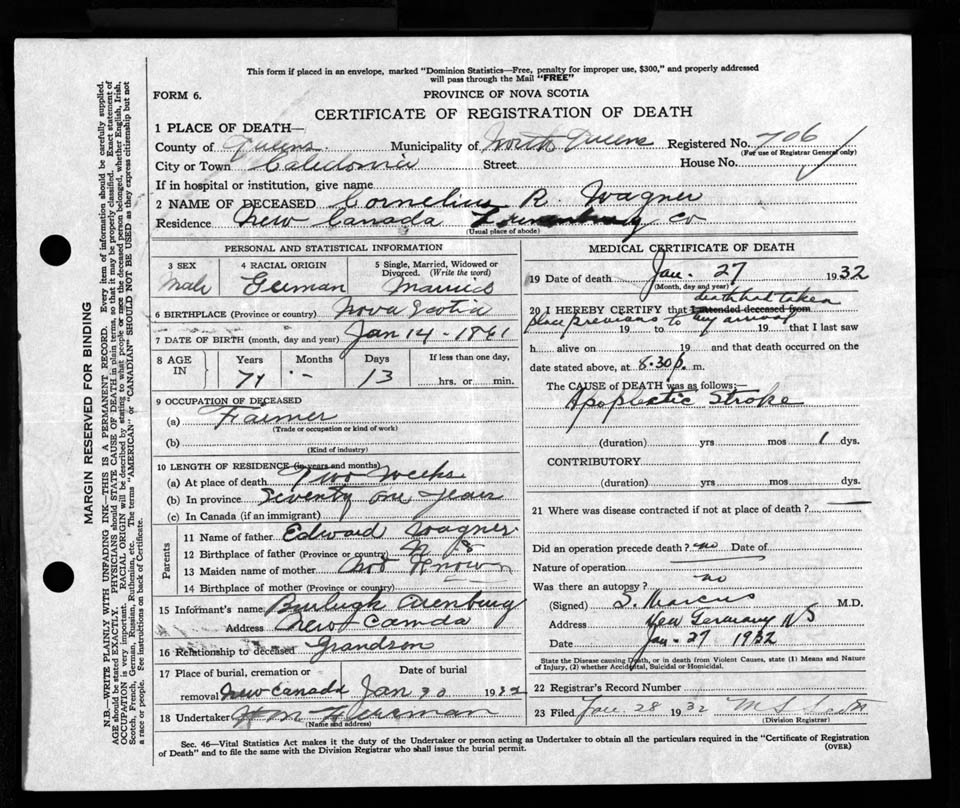 This form if placed in an envelope, marked "Dominion Statistics—Free, penalty for improper use, $300," and properly addressed
will pass through the Mail "FREE"
FORM 6.
PROVINCE OF NOVA SCOTIA
CERTIFICATE OF REGISTRATION OF DEATH
1 PLACE OF DEATH—
County of Queens Municipality of North Queens Registered No. 706
(For use of Registrar General only)
City or Town Caledonia Street House No.
If in hospital or institution, give name
2 NAME OF DECEASED Cornelius R. Wagner
Residence New Canada Lunenburg Co
(Usual place of abode)
PERSONAL AND STATISTICAL INFORMATION
3 SEX Male
4 RACIAL ORIGIN German
5 Single, Married, Widowed or Divorced. (Write the word) Married
6 BIRTHPLACE (Province or country) Nova Scotia
7 DATE OF BIRTH (month, day and year) Jan 14 - 1861
8 AGE IN Years 71 Months - Days 13 If less than one day, hrs. or min.
9 OCCUPATION OF DECEASED
(a) Farmer
(Trade or occupation or kind of work)
(b)
(Kind of industry)
10 LENGTH OF RESIDENCE (in years and months)
(a) At place of death Two Weeks
(b) In province Seventy one Years
(c) In Canada (if an immigrant)
Parents
11 Name of father Edward Wagner
12 Birthplace of father (Province or country) N S
13 Maiden name of mother Not Known
14 Birthplace of mother (Province or country)
15 Informant's name Burleigh Arenburg
Address New Canada
16 Relationship to deceased Grandson
17 Place of burial, cremation or removal New Canada Date of burial Jan 30 1932
18 Undertaker
(Name and address)
MEDICAL CERTIFICATE OF DEATH
19 Date of death Jan. 27 1932
(Month, day and year)
20 I HEREBY CERTIFY that I attended deceased from death had taken
place previous to my arrival 19 to 19 that I last saw
h alive on 19 and that death occurred on the
date stated above, at 8.30 p. m.
The CAUSE of DEATH was as follows:—
Apoplectic Stroke
(duration) yrs mos 1 dys.
CONTRIBUTORY
(duration) yrs mos dys.
21 Where was disease contracted if not at place of death?
Did an operation precede death? no Date of
Nature of operation
Was there an autopsy? no
(Signed) S. Marcus M.D.
Address New Germany N S
Date Jan - 27 1932
State the Disease causing Death, or in death from Violent Causes, state (1) Means and Nature
of Injury, (2) whether Accidental, Suicidal or Homicidal.
22 Registrar's Record Number
23 Filed Jan 28 1932 M S
(Division Registrar)
Sec. 46—Vital Statistics Act makes it the duty of the Undertaker or person acting as Undertaker to obtain all the particulars required in the "Certificate of Registration
of Death" and to file the same with the Division Registrar who shall issue the burial permit.
(OVER)
MARGIN RESERVED FOR BINDING
N.B.—WRITE PLAINLY WITH UNFADING INK—THIS IS A PERMANENT RECORD. Every item of information should be carefully supplied.
AGE should be stated EXACTLY. PHYSICIANS should STATE CAUSE OF DEATH in plain terms so that it may be properly classified. Exact statement of
OCCUPATION is very important. RACIAL ORIGIN will be described by stating to what people or race the deceased person belonged, whether English, Irish,
Scotch, French, German, Russian, Ruthenian, etc. The terms "AMERICAN" or "CANADIAN" SHOULD NOT BE USED as they express citizenship but not
a race or people. See instructions on back of Certificate.